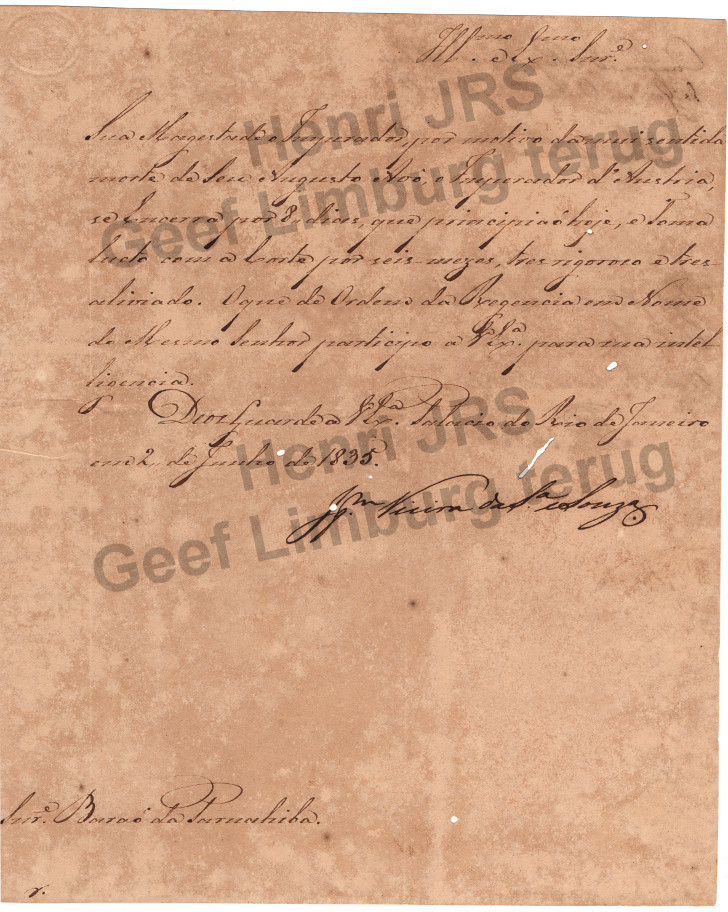 Ill.mo Exmo Snr.e
Sua Magestade o Imperador, por motivo da mui sentida
morte de Seu Augusto Avô, o Imperador d'Austria,
se Encerra por 8 dias, que principiaõ hoje, e Toma
lucto com a Corte por seis mezes, tres rigoroso e tres
aliviado. O que de Ordem da Regencia em Nome
do Mesmo Senhor participo a V.Ex.a para sua intel
ligencia.
Deos Guarde a V.Ex.a. Palacio do Rio de Janeiro
em 2 de Junho de 1835.
Jm Vieira da S.a e Souza
Snr.e Baraõ da Parnahiba.
Henri JRS
Geef Limburg terug
Henri JRS
Geef Limburg terug